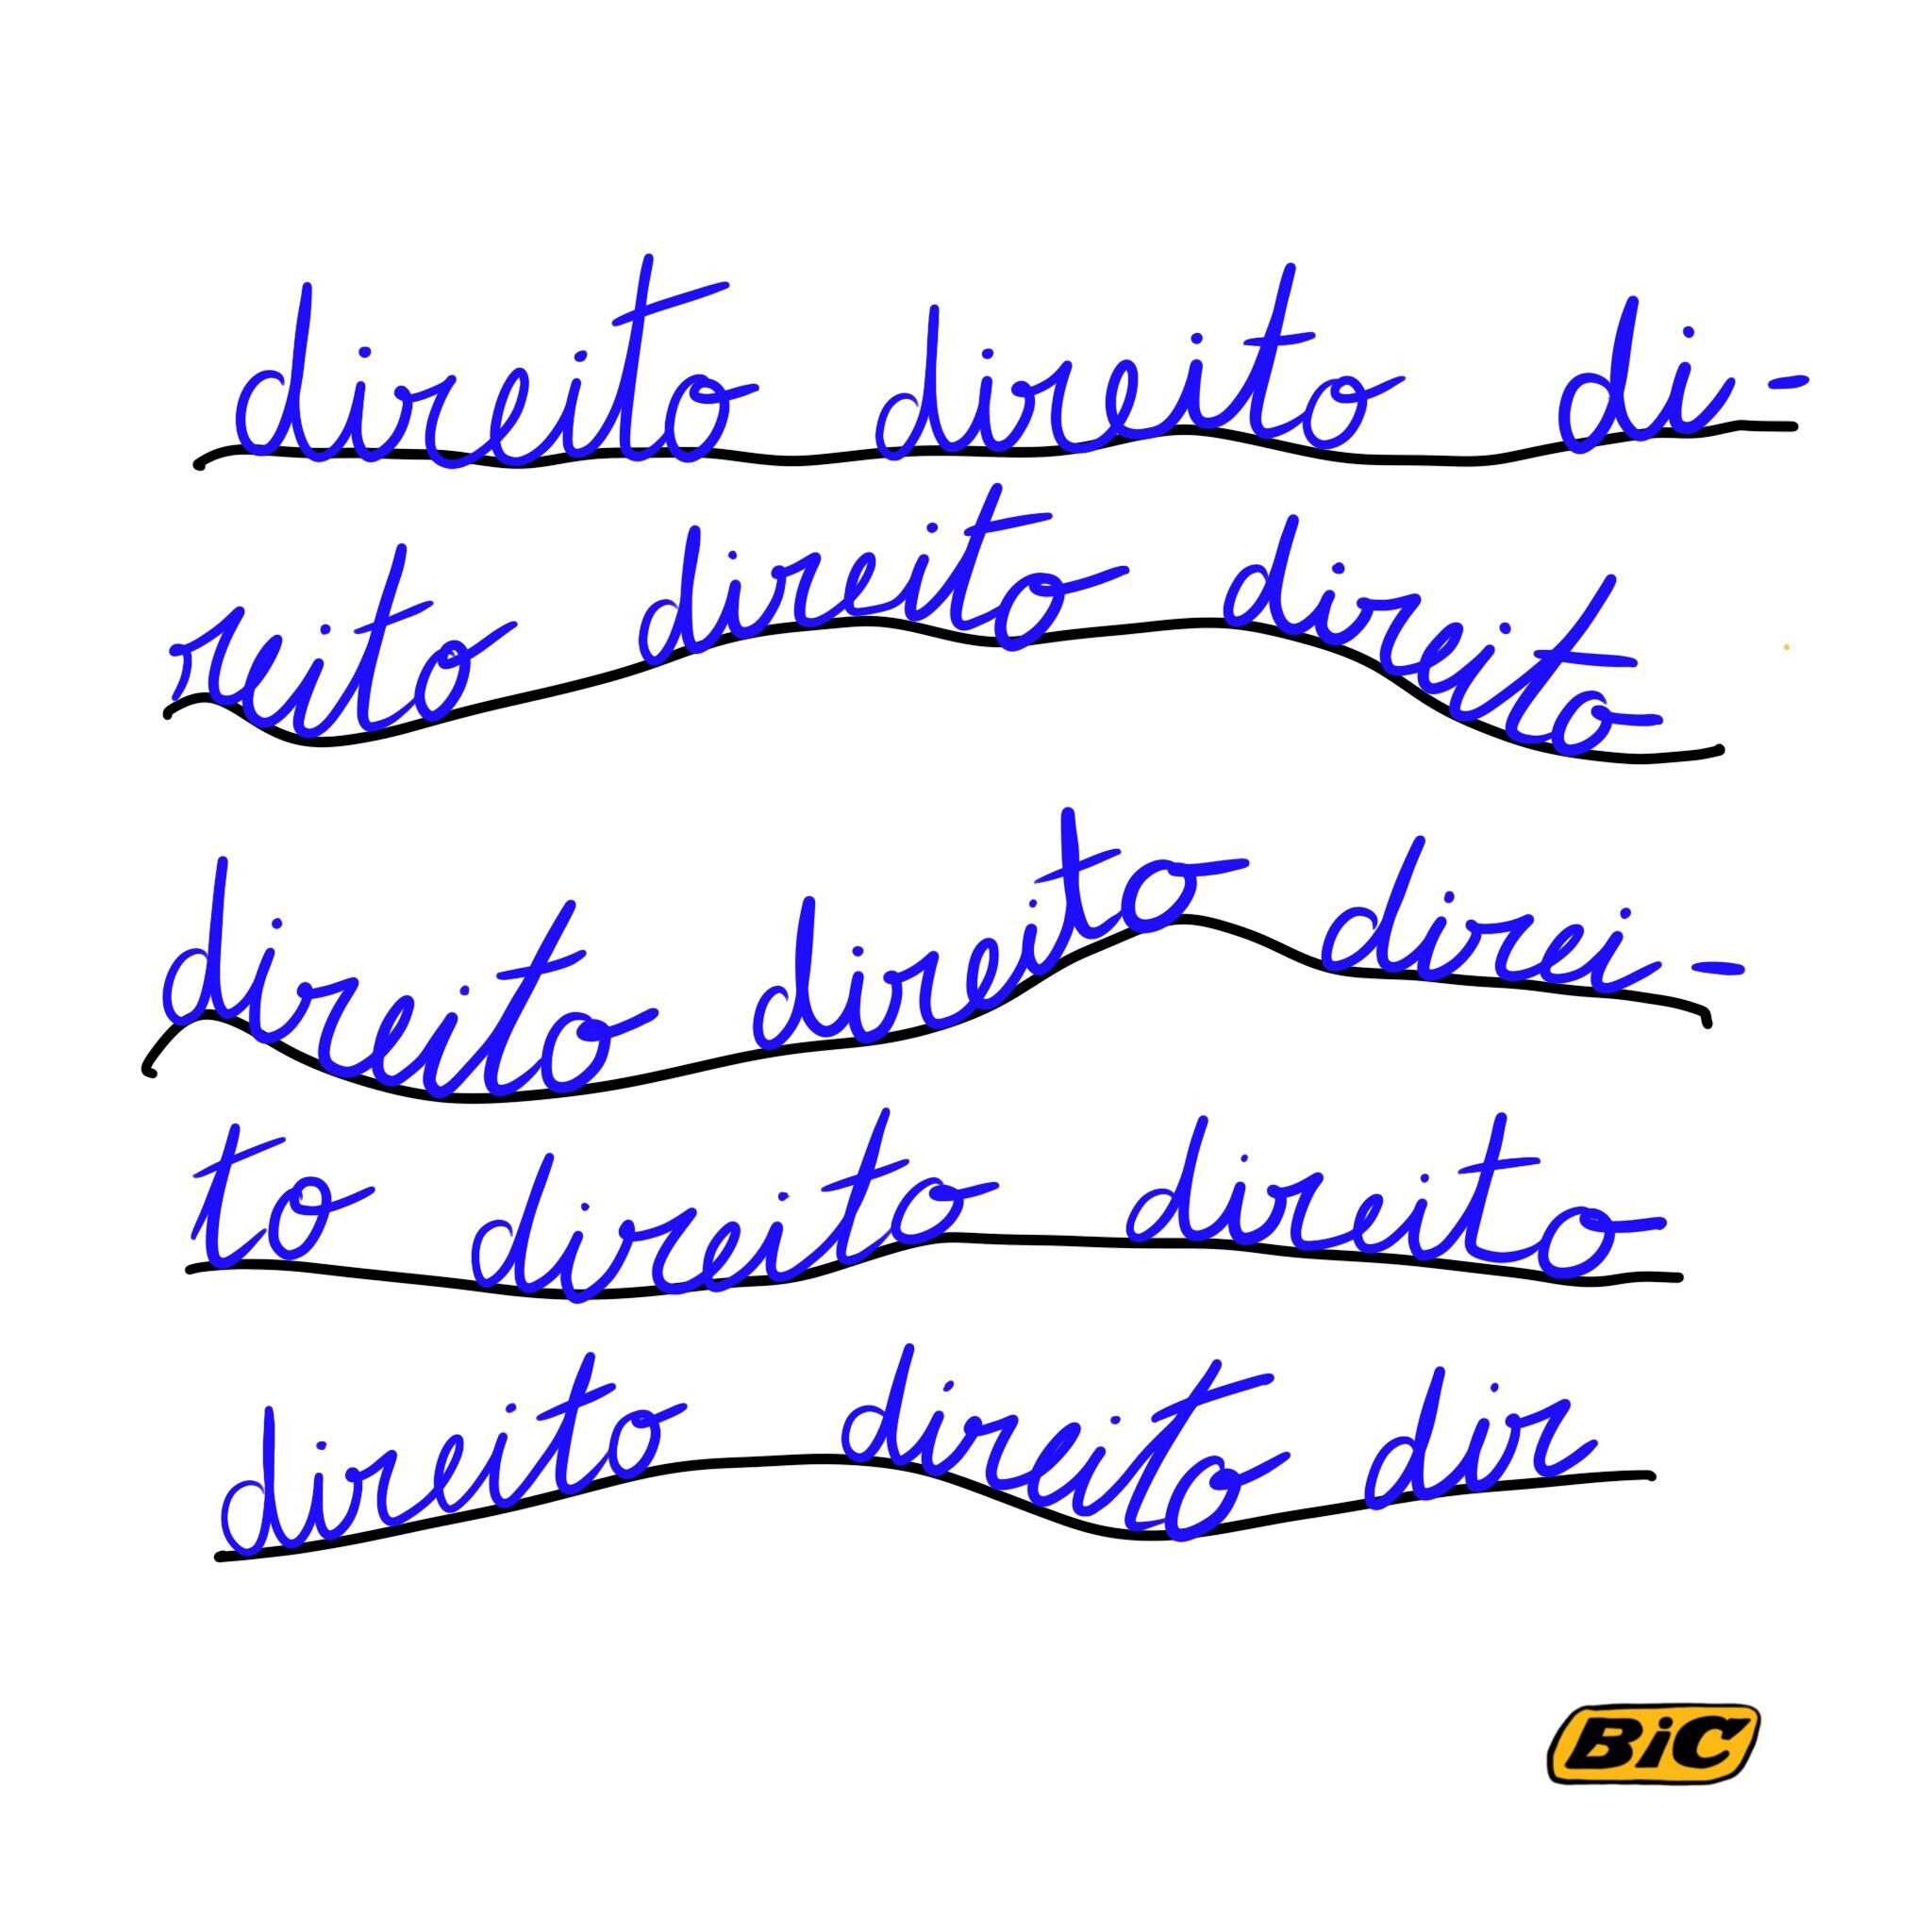 direito direito di-
reito direito direito
direito direito direi-
to direito direito
direito direito dir
BiC